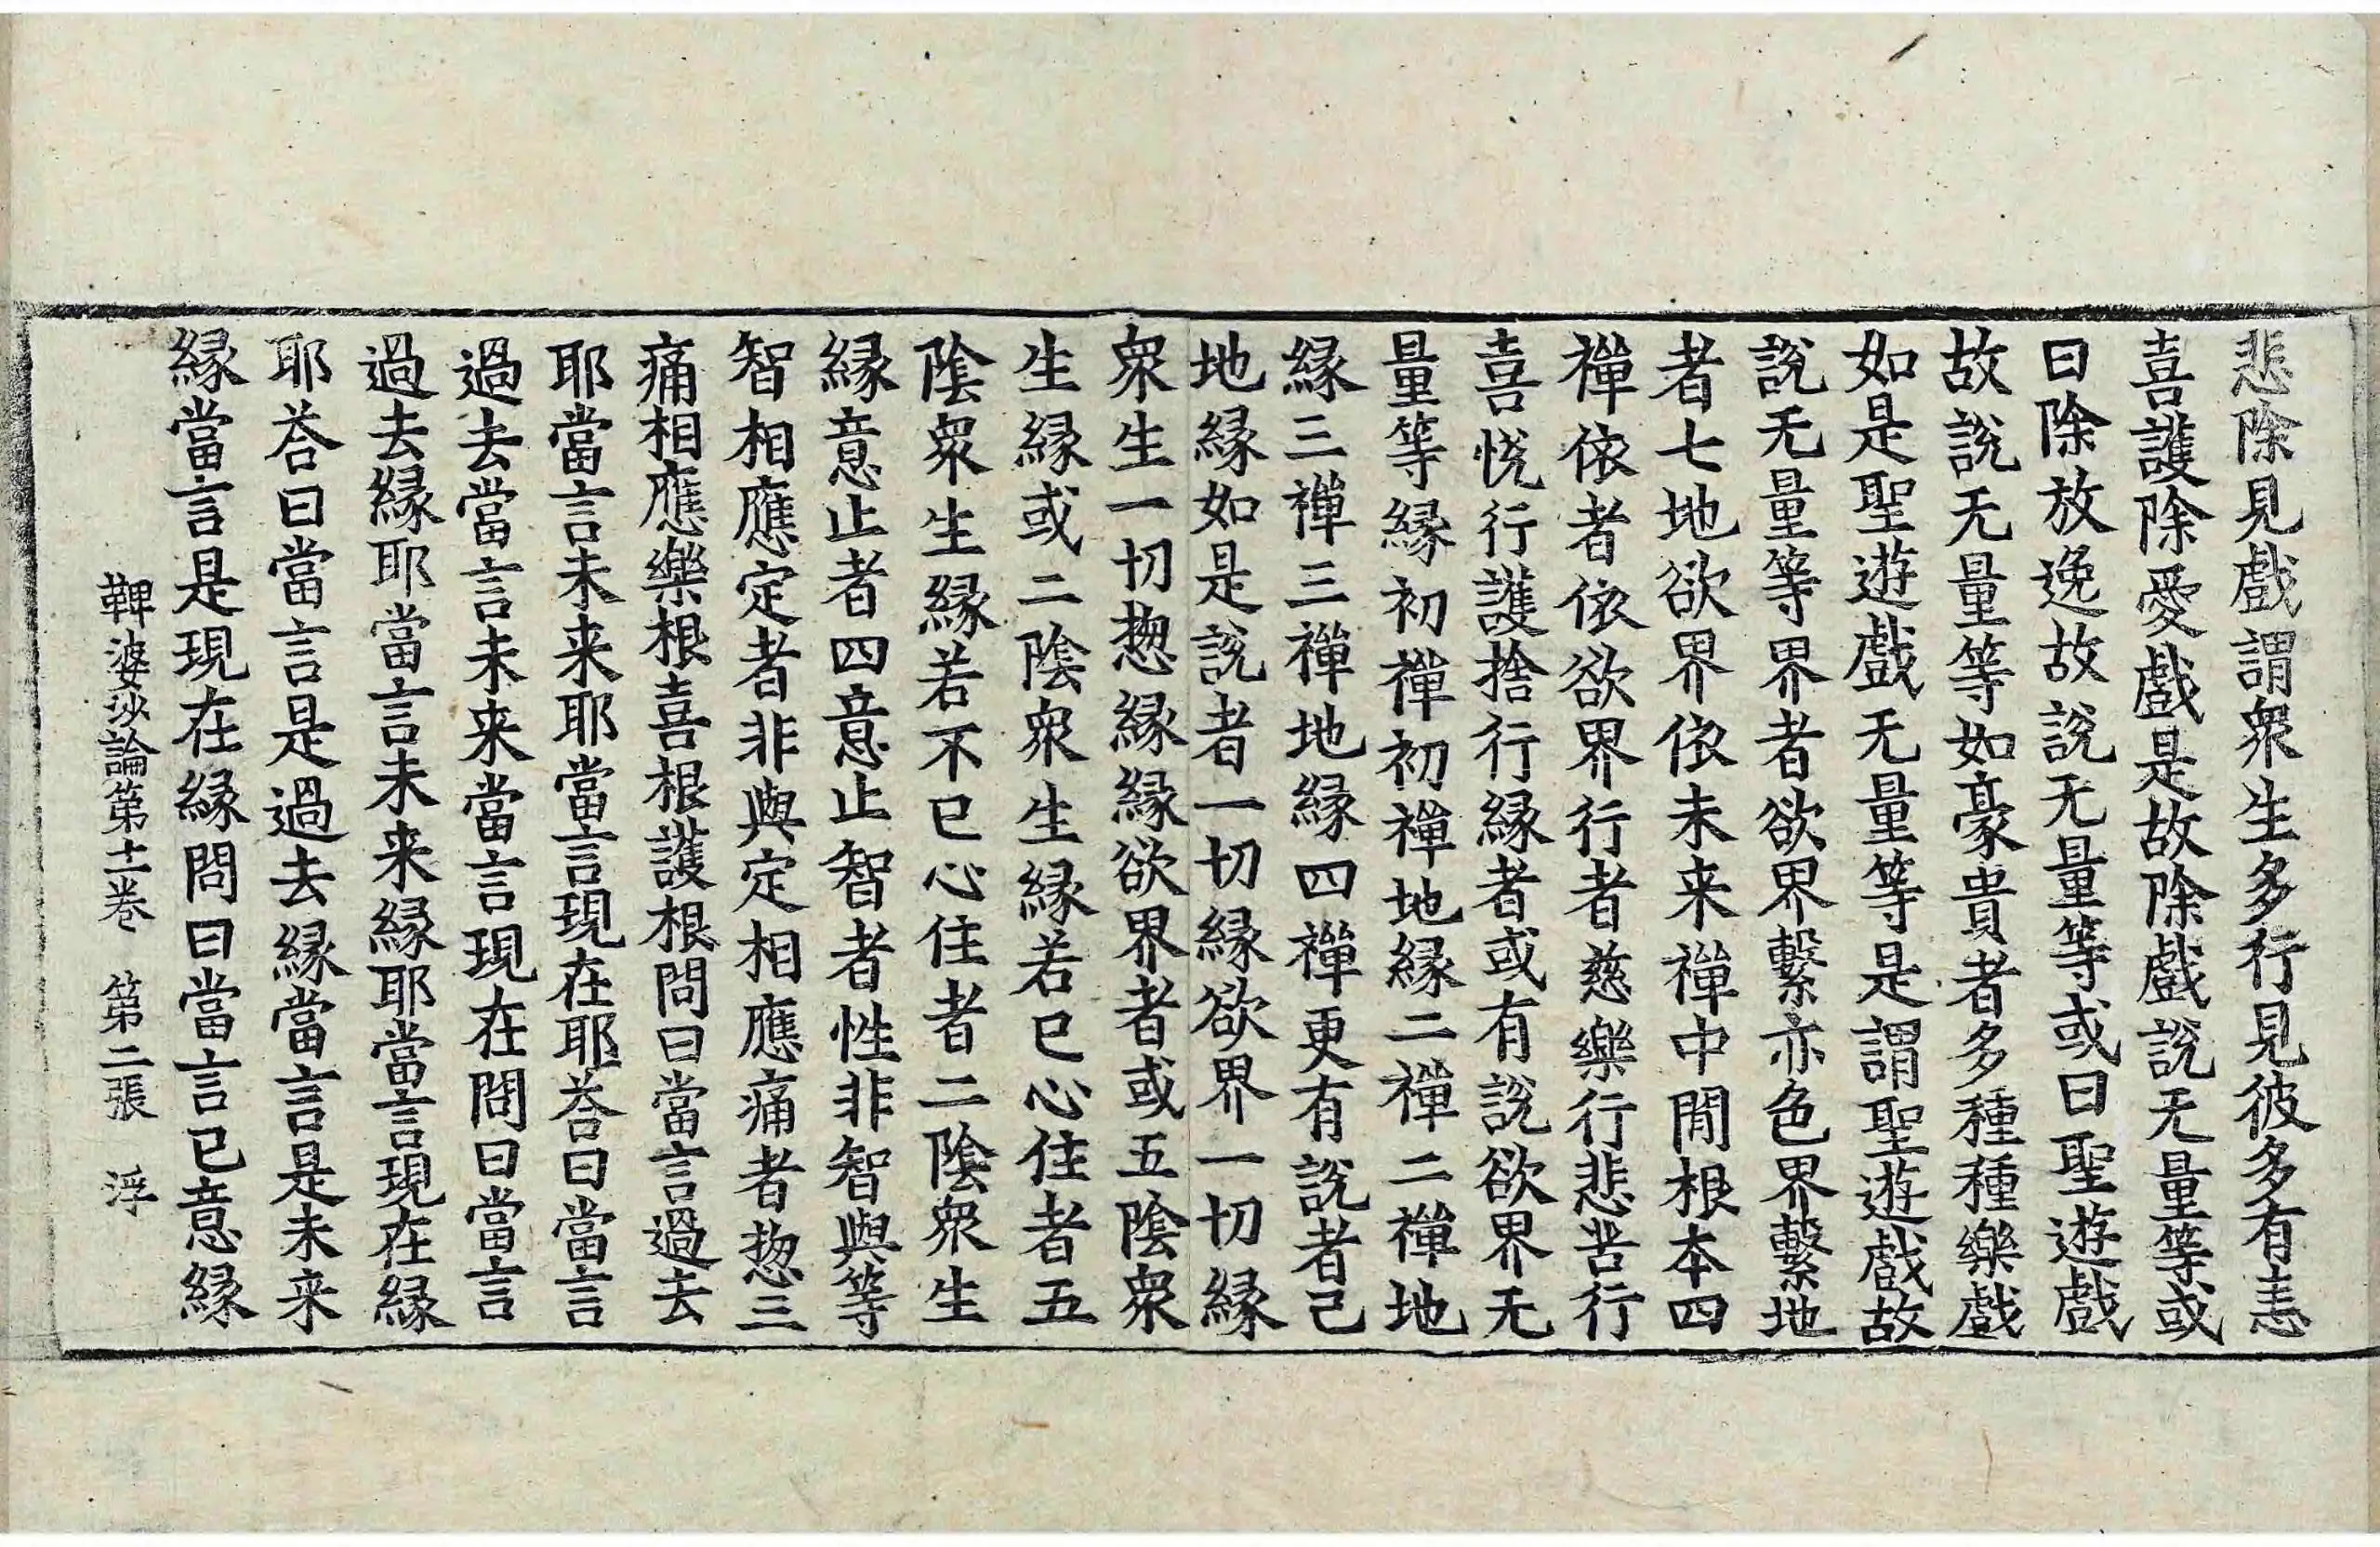 悲除見戲謂衆生多行見彼多有恚
喜護除愛戲是故除戲說无量等或
曰除放逸故說无量等或曰聖遊戲
故說无量等如豪貴者多種種樂戲
如是聖遊戲无量等是謂聖遊戲故
說无量等界者欲界繫亦色界繫地
者七地欲界依未来禪中間根本四
禪依者依欲界行者慈樂行悲苦行
喜悅行護捨行緣者或有說欲界无
量等緣初禪初禪地緣二禪二禪地
緣三禪三禪地緣四禪更有說者己
地緣如是說者一切緣欲界一切緣
衆生一切惣緣緣欲界者或五陰衆
生緣或二陰衆生緣若已心住者五
陰衆生緣若不已心住者二陰衆生
緣意止者四意止智者性非智與等
智相應定者非與定相應痛者惣三
痛相應樂根喜根護根問曰當言過去
耶當言未来耶當言現在耶荅曰當言
過去當言未来當言現在問曰當言
過去緣耶當言未来緣耶當言現在緣
耶荅曰當言是過去緣當言是未来
緣當言是現在緣問曰當言已意緣
鞞婆沙論第十二卷 第二張 浮